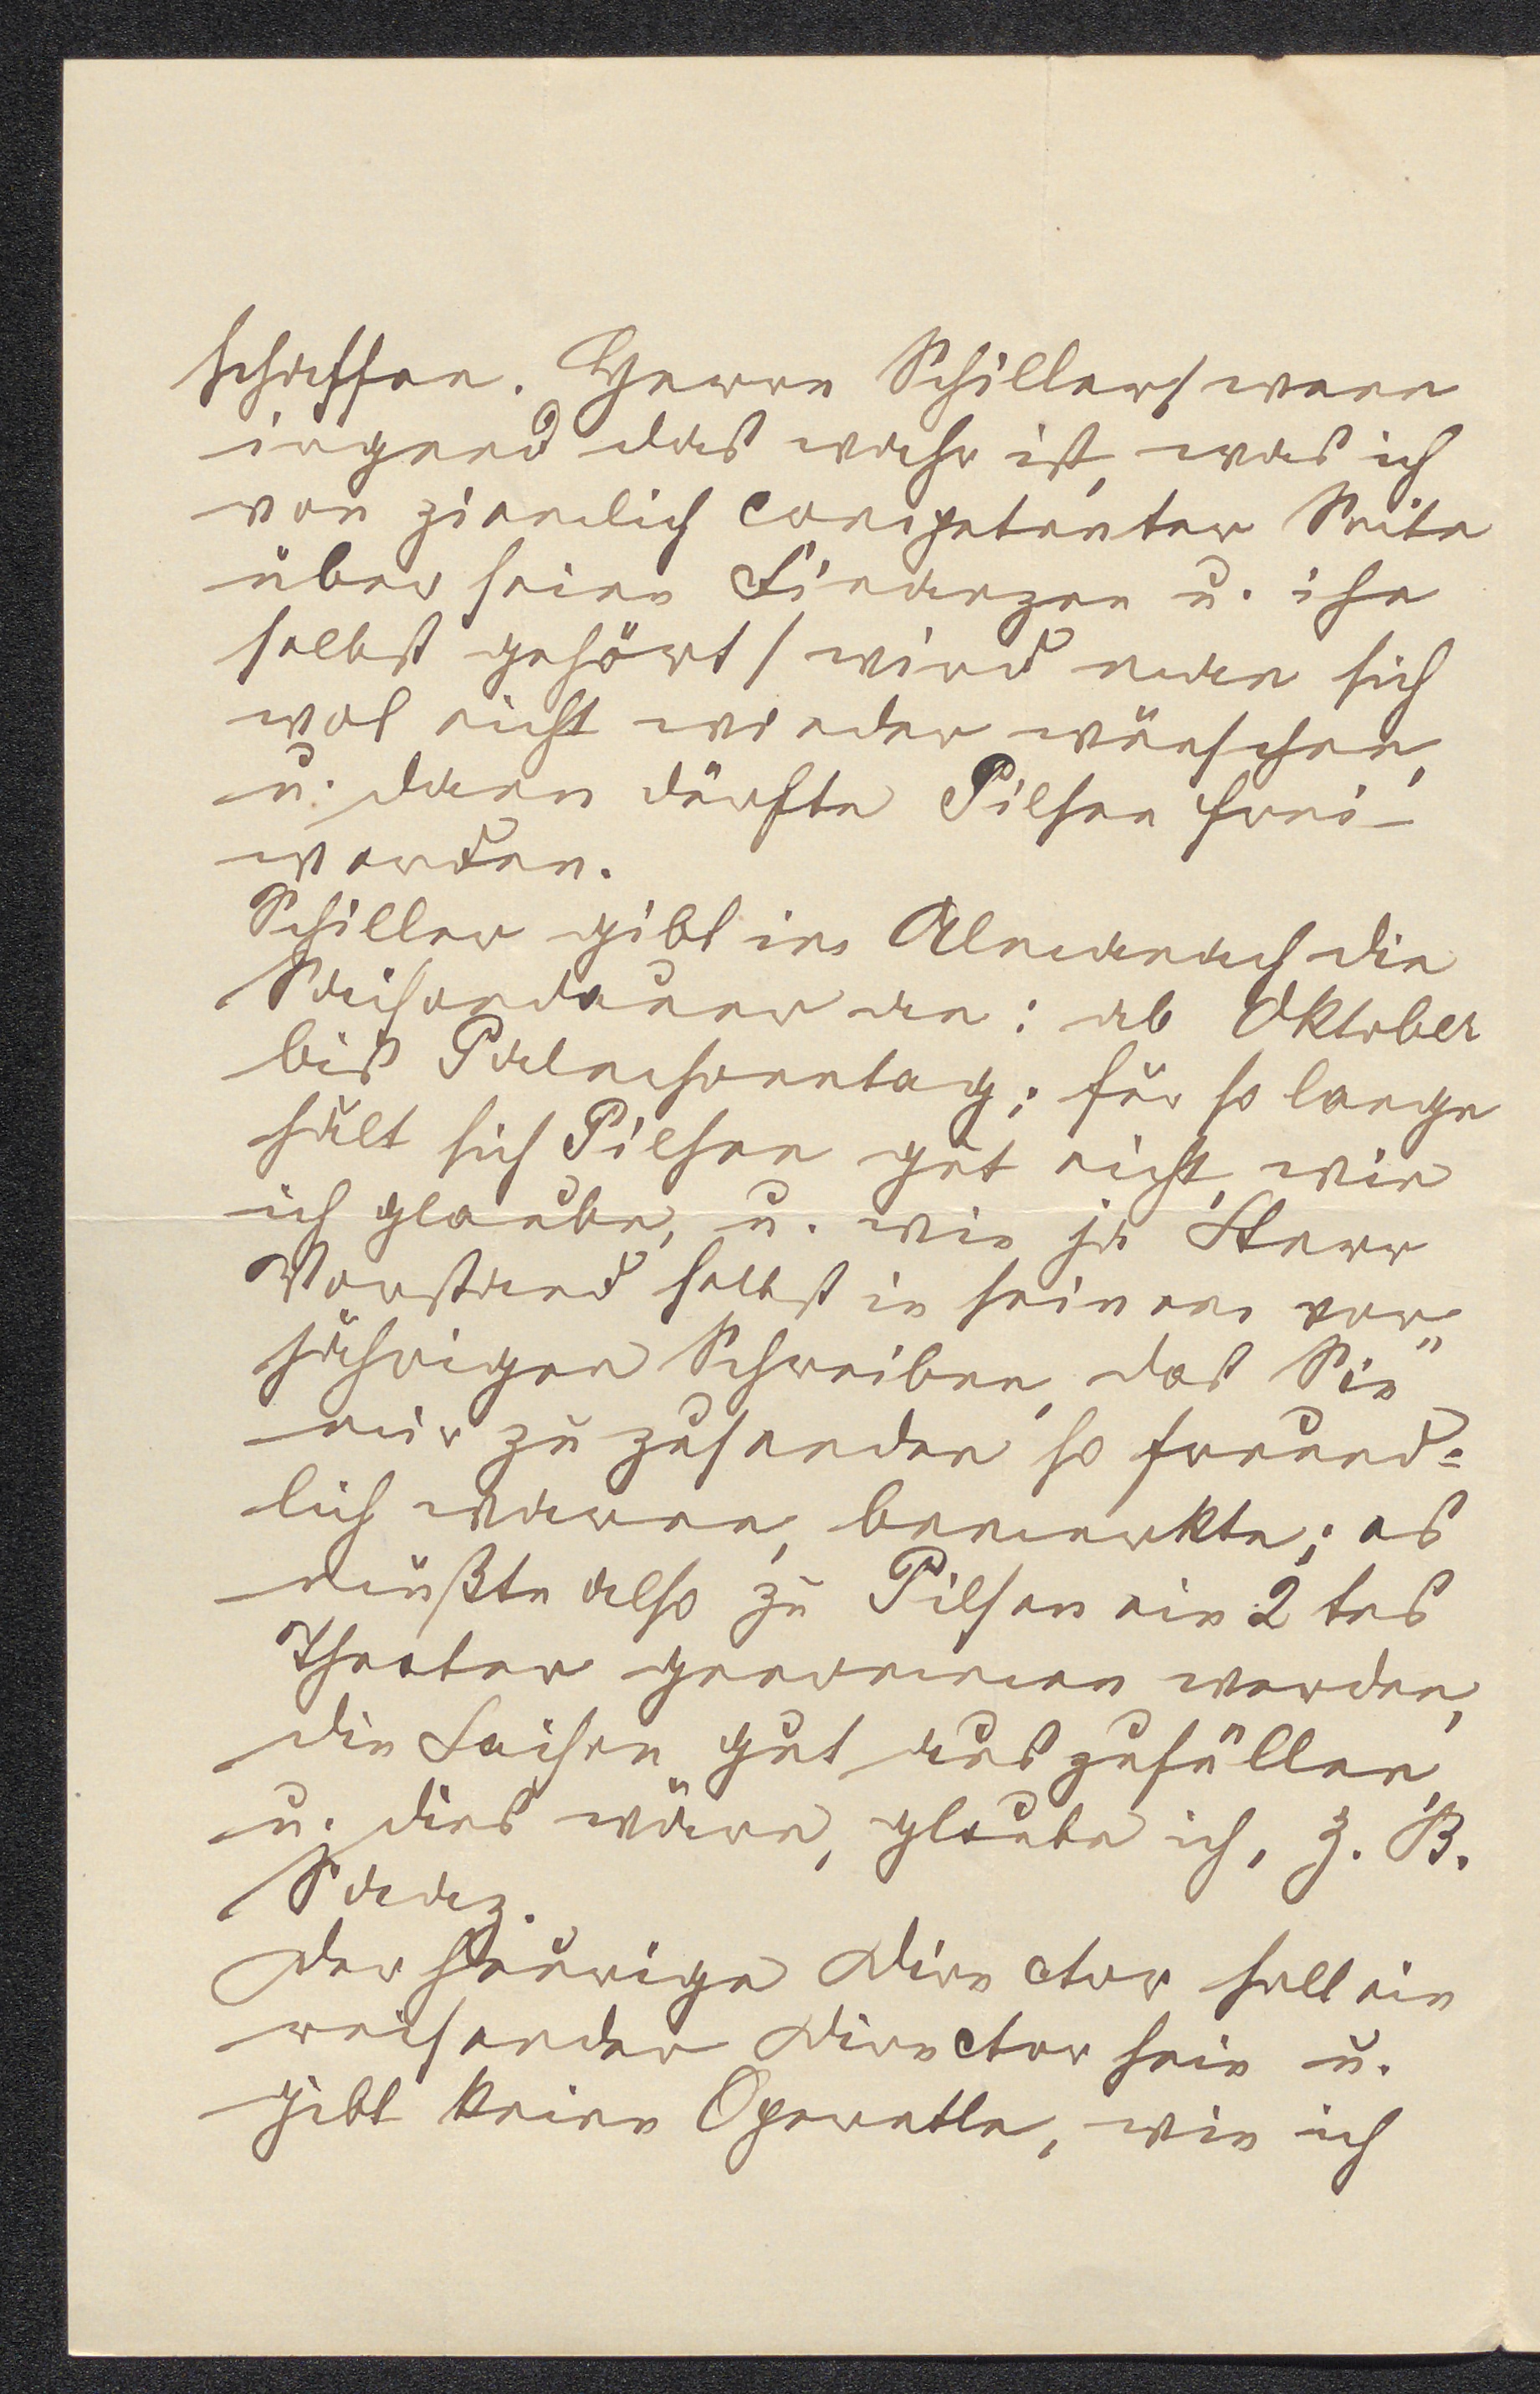 schaffen. Herrn Schiller / wenn
irgend das wahr ist, was ich
von ziemlich competenter Seite
über seine Finanzen u. ihn
selbst gehört / wird man sich
wol nicht wieder wünschen,
u. dann dürfte Pilsen frei-
werden.
Schiller gibt im Almanach die
Saisondauer an: ab Oktober
bis Palmsonntag; für so lange
hält sich Pilsen gut nicht, wie
ich glaube, u. wie ja Herr
Vorstand selbst in seinem vor-
jährigen Schreiben, das Sie
mir zu zusenden so freund=
lich waren, bemerkte; es
müßte also zu Pilsen ein 2 tes
Theater genommen werden,
die Saison gut auszufüllen,
u. dies wäre, glaube ich, z. B.
Saaz.
Der heurige Director soll ein
reisender Director sein u.
gibt keine Operette, wie ich